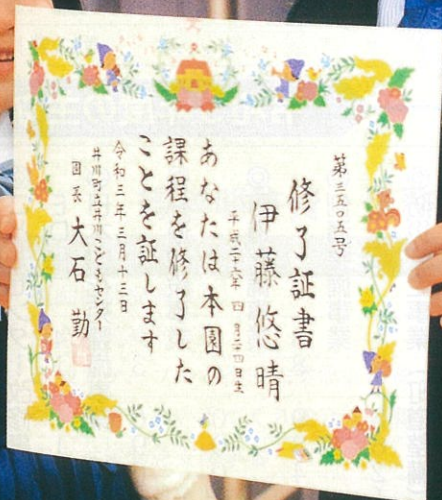 第三五〇五号
修了証書
伊藤悠晴
平成二十六年四月二四日生
あなたは本園の
課程を修了した
ことを証します
令和三年三月十三日
井川町立井川こどもセンター
園長 大石 勤